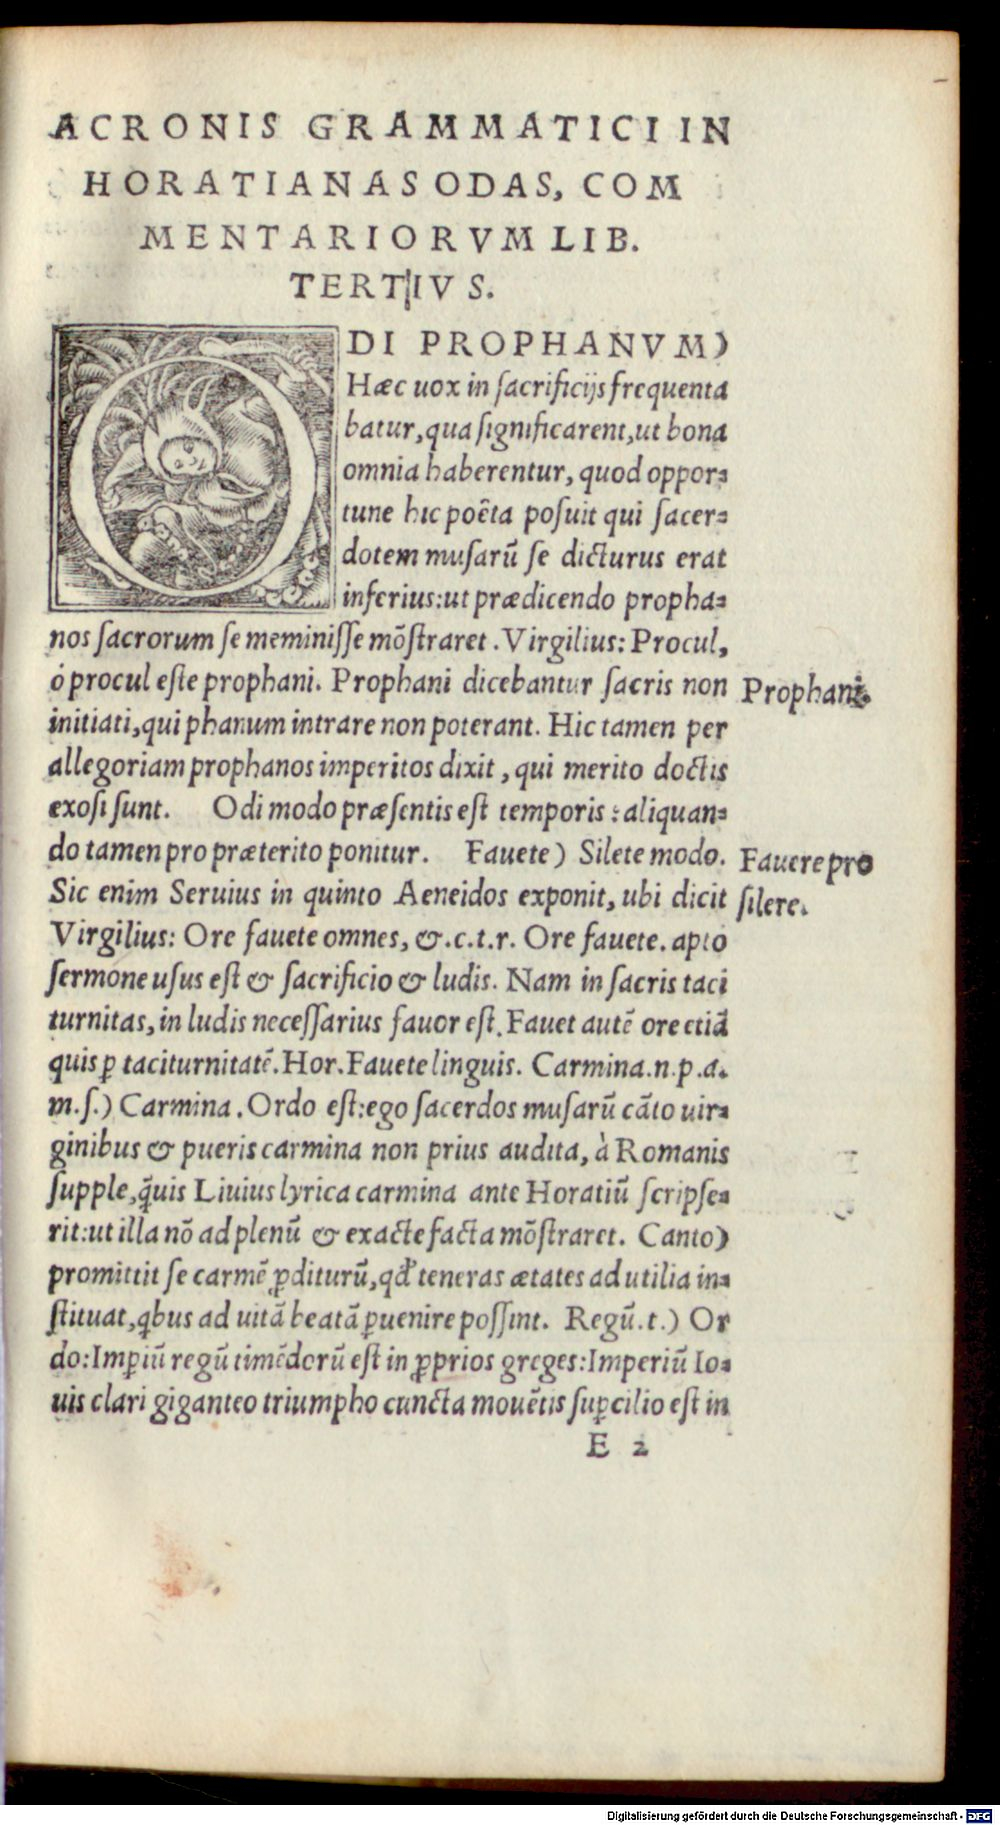 ACRONIS GRAMMATICI IN
HORATIANAS ODAS, COM
MENTARIORVM LIB.
TERTIVS.
ODI PROPHANVM)
Hæc uox in sacrificijs frequenta
batur, qua significarent, ut bona
omnia haberentur, quod oppor=
tune hic poëta posuit qui sacer=
dotem musarū se dicturus erat
inferius: ut prædicendo propha=
nos sacrorum se meminisse mōstraret. Virgilius: Procul,
ó procul este prophani. Prophani dicebantur sacris non
Prophani.
initiati, qui phanum intrare non poterant. Hic tamen per
allegoriam prophanos imperitos dixit, qui merito doctis
exosi sunt. Odi modo præsentis est temporis: aliquan=
do tamen pro præterito ponitur. Fauete) Silete modo.
Fauere pro
Sic enim Seruius in quinto Aeneidos exponit, ubi dicit
silere.
Virgilius: Ore fauete omnes, &.c.t.r. Ore fauete. apto
sermone usus est & sacrificio & ludis. Nam in sacris taci
turnitas, in ludis necessarius fauor est. Fauet autē ore etiā
quis ꝑ taciturnitatē. Hor. Fauete linguis. Carmina.n.p.a.
m.s.) Carmina. Ordo est: ego sacerdos musarū cāto uir=
ginibus & pueris carmina non prius audita, à Romanis
supple, q̄uis Liuius lyrica carmina ante Horatiū scripse=
rit: ut illa nō ad plenū & exacte facta mōstraret. Canto)
promittit se carmē ꝓditurū, qđ teneras ætates ad utilia in=
stituat, qbus ad uitā beatā ꝑuenire possint. Regū.t.) Or
do: Imꝑiū regū timēdorū est in ꝓprios greges: Imperiū Io=
uis clari giganteo triumpho cuncta mouētis suꝑcilio est in
E 2
Digitalisierung gefördert durch die Deutsche Forschungsgemeinschaft - DFG